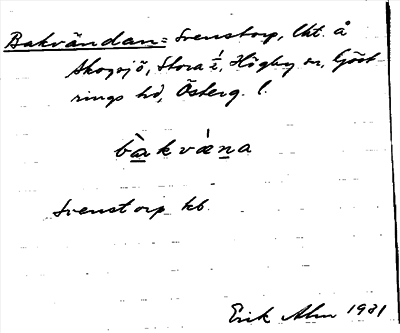 Bakvändan = Svenstorp, Utt. å
Skogsjö, Stora ½, Högby sn, Göst-
rings hd, Österg. l.
bàkvǽna
Svenstorp kb.
Erik Alm 1931